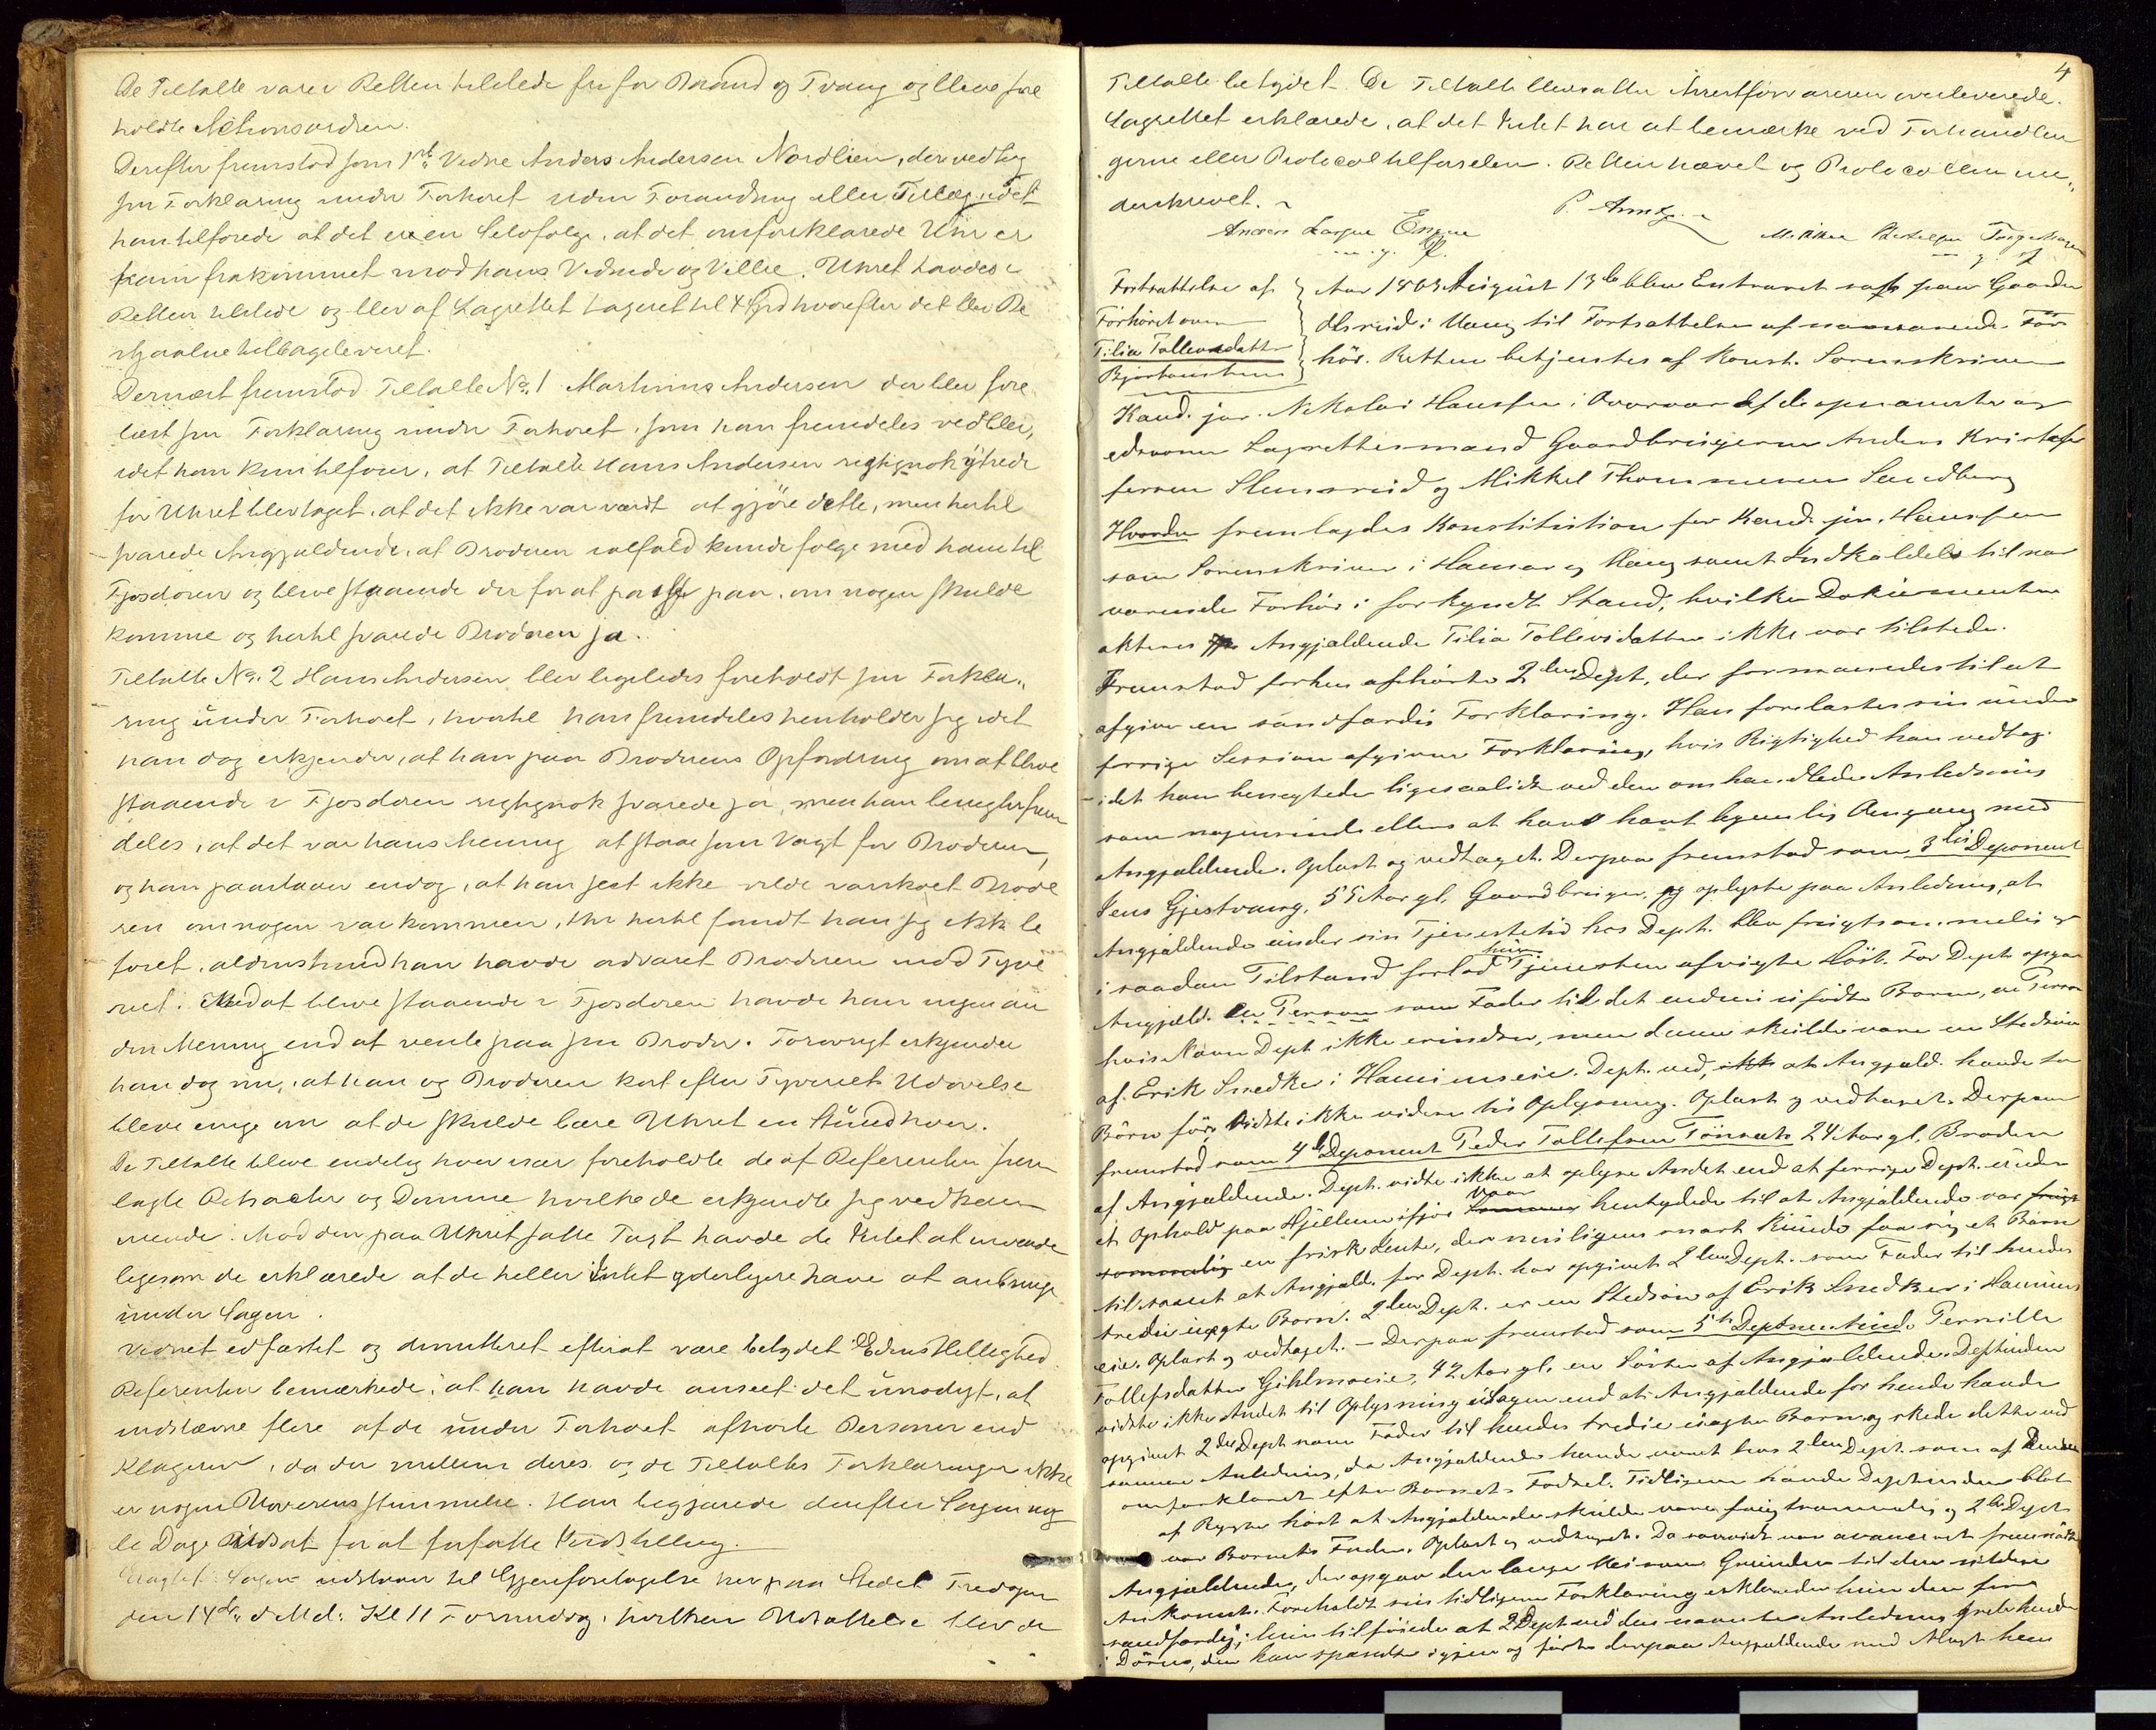 De Tiltalte varer Retten tilstede fri for Baand og Tvang og bleve fore
holdte Actionsordren.
Derefter fremstod som 1ste Vidne Anders Andersen Nordlien, der vedtog
sin Forklaring under Forhøret uden Forandring eller Tillæg, idet
han tilførede at det er en Selvfølge, at det omforklarede Uhr er
ham frakommet mod hans Vidende og Villie. Uhret havdes i
Retten tilstede og blev af Lagrettet taxeret til 4 Spd hvorefter det blev Be
stjaalne tilbageleveret.
Dernæst fremstod Tiltalte No. 1 Martinus Andersen der blev fore
læst sin Forklaring under Forhøret, som han fremdeles vedblev,
idet han kun tilføier, at Tiltalte Hans Andersen rigtignok ytrede
før Uhret blev taget, at det ikke var værdt at gjöre dette, men hertil
svarede Angjældende, at Broderen ialfald kunde følge med ham til
Fjøsdøren og blive staaende der for at passe paa, om nogen skulde
komme og hertil svarede Broderen ja.
Tiltalte No. 2 Hans Andersen blev ligeledes foreholdt sin Forkla-
ring under Forhøret, hvortil han fremdeles henholder sig idet
han dog erkjender, at han paa Broderens Opfordring om at blive
staaende i Fjøsdøren rigtignok svarede ja, men han benegter frem
deles, at det var hans Mening at staae som Vagt for Broderen,
og han paastaaer endog, at han jest ikke vilde varskoet Brode
ren om nogen var kommen, thi hertil fandt han sig ikke be
føiet, aldenstund han havde advaret Broderen mod Tyve
riet. Med at blive staaende i Fjøsdøren havde han ingen an
den Mening end at vente paa sin Broder. Forøvrigt erkjender
han dog nu, at han og Broderen kort efter Tyveriets Udøvelse
bleve enige om at de skulde bære Uhret en Stund hver.
De Tiltalte bleve endelig hver især foreholdte de af Referenten frem
lagte Attester og Domme hvilke de erkjendte sig vedkom
mende. Mod den paa Uhret satte Taxt havde de Intet at invende
ligesom de erklærede at de heller Intet yderligere have at anbringe
under Sagen.
Vidnet edfæstet og dimitteret efterat være betydet Edens Hellighed.
Referenten bemærkede, at han havde anseet det unødigt, at
indstævne flere af de under Forhøret afhørte Personer end
Klageren, da der mellem deres og de Tiltaltes Forklaringer ikke
er nogen Uoverensstemmelse. Han begjærede derefter Sagen nog
le Dage Udsat for at forfatte Indstilling.
Eragtet: Sagen udstaaer til Gjenforetagelse her paa Stedet Fredagen
den 14de d. Md: Kl 11 Formiddag, hvilken Udsættelse blev de
4
Tiltalte betydet. De Tiltalte bleve atter Arrestforvareren overleverede.
Lagrettet erklærede, at det Intet har at bemærke ved Forhandlin
gerne eller Protocoltilførselen. Retten hævet og Protocollen un-
derskrevet.
Fortsættelse af
Forhöret over
Tilia Tollevsdatter
Björtomt
Aar 1863 August 13de blev Extraret sat paa Gaarden
Olsrud i Vang til Fortsættelse af nærværende For
hör. Retten betjentes af konst. Sorenskriver
Kand. jur. Nikolai Hanssen i Overvær af de opnævnte og
edsvorne Lagrettesmænd Gaardbrugerne Anders Kristof
fersen Slemsrud og Mikkel Thommesen Sandberg
Hvorda fremlagdes Konstitution for Kand. jur. Hanssen
som Sorenskriver i Hamar og Vang samt Indkaldelse til nær
værende Forhör i forkyndt Stand, hvilke Dokumenter
akteres Angjældende Tilia Tollevsdatter ikke var tilstede.
Fremstod forhen afhörte 2den Dept, der formanedes til at
afgive en sandfærdig Forklaring. Han forelæstes sin under
forrige Session afgivne Forklaring, hvis Rigtighed han vedtog
idet han benegtede ligesaalidt ved den omhandlede Anledning
som nogensinde ellers at have havt legemlig Omgang med
Angjældende. Oplæst og vedtaget. Derpaa fremstod som 3die Deponent
Jens Gjestvang, 55 Aar gl. Gaardbruger, og oplyste paa Anledning, at
Angjældende under sin Tjenestetid hos Dept. blev frugtsommelig og
i saadan Tilstand forlod hun Tjenesten afvigte Höst. For Dept. opgav
Angjæld. en Person som Fader til det endnu ufödte Barn, en Person
hvis Navn Dept ikke erindrer, men denne skulde være en Stedsön
af Erik Snedker i . Dept. ved, ikke at Angjæld. havde to
Börn för, Vidste ikke videre til Oplysning. Oplæst og vedtaget. Derpaa
fremstod som 4de Deponent Peder Tollefsen Tönset 24 Aar gl. Broder
af Angjældende. Dept. vidste ikke at oplyse Andet end at forrige Dept. under
et Ophold paa Hjellum ifjor Sommer Vaar hentydede til at Angjældende var frugt
sommelig en frisk Jente, der rimeligvis snart kunde faa sig et Barn
til samt at Angjæld. for Dept. har opgivet 2den Dept. som Fader til hendes
tredie uægte Barn. 2den Dept. er en Stedsön af Erik Snedker i
eie. Oplæst og vedtaget. — Derpaa fremstod som 5te Deponentinde Pernille
Tollefsdatter , 42 Aar gl. en Söster af Angjældende. Deptinden
vidste ikke Andet til Oplysning i Sagen end at Angjældende for hende havde
opgivet 2den Dept som Fader til hendes tredie uægte Barn og skede dette ved
samme Anledning, da Angjældende havde været hos 2den Dept. som af
omforklaret efter Barnets Födsel. Tidligere havde Deptinden blot
af Rygter hört at Angjældende skulde være frugtsommelig og 2den Dept
var Barnets Fader. Oplæst og vedtaget. Da saavidt var avanceret fremmödte
Angjældende, der opgav den lange Vei som Grunden til den sildige
Ankomst. Foreholdt sin tidligere Forklaring erklærede hun den for
sandfærdig; hun tilföiede at 2 Dept ved den nævnte Anledning greb hende
i Dören, den han spændte igjen og förte derpaa Angjældende med Magt hen